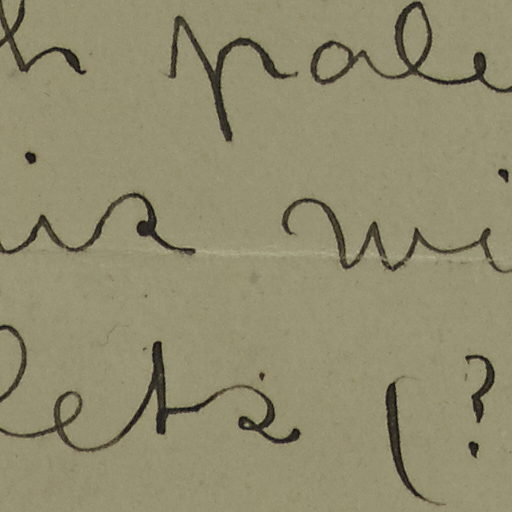 h pale
is wi
lets (?